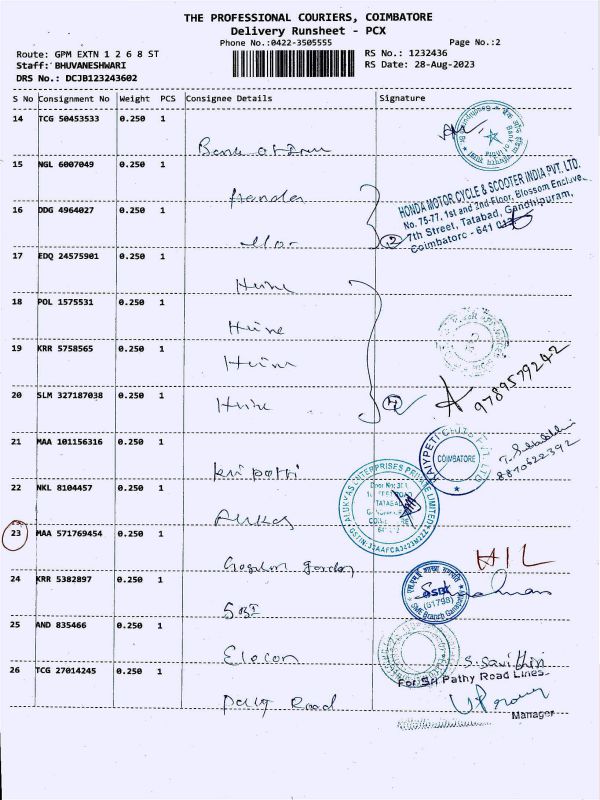 THE PROFESSIONAL COURIERS, COIMBATORE
Delivery Runsheet - PCX
Phone No.:0422-3505555
Page No.:2
Route: GPM EXTN 1 2 6 8 ST
RS No.: 1232436
Staff: BHUVANESHWARI
RS Date: 28-Aug-2023
DRS No.: DCJB123243602
S No Consignment No Weight PCS Consignee Details Signature
14 TCG 50453533 0.250 1
Bank of
15 NGL 6007049 0.250 1
Honda
HONDA MOTOR CYCLE & SCOOTER INDIA PVT. LTD.
No. 75-77, 1st and 2nd Floor, Blossom Enclave,
7th Street, Tatabad, Gandhipuram,
Coimbatore - 641
16 DDG 4964027 0.250 1
2
17 EDQ 24575901 0.250 1
18 POL 1575531 0.250 1
19 KRR 5758565 0.250 1
9789579242
20 SLM 327187038 0.250 1
4
21 MAA 101156316 0.250 1
COIMBATORE
8870622392
22 NKL 8104457 0.250 1
ALUKKAS ENTERPRISES PRIVATE LIMITED
23 MAA 571769454 0.250 1
HIL
24 KRR 5382897 0.250 1
SBI
(61798)
25 AND 835466 0.250 1
Elecon
S. Savithiri
26 TCG 27014245 0.250 1
For Sri Pathy Road Lines
Road
Manager